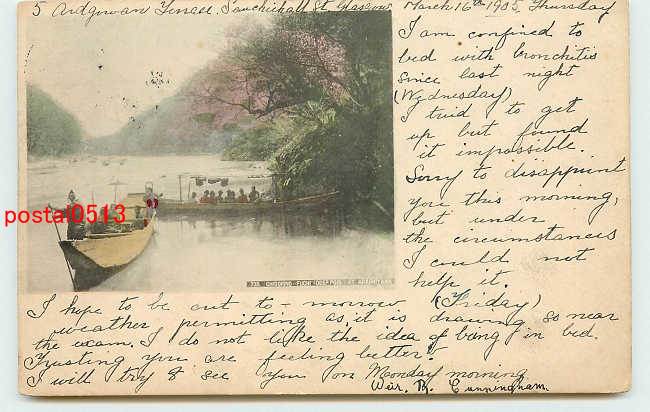 5 Ardgowan Terrace, Sauchiehall St. Glasgow
March 16th 1905, Thursday
I am confined to
bed with bronchitis
since last night
(Wednesday)
I tried to get
up but found
it impossible.
Sorry to disappoint
you this morning,
but under
the circumstances
I could not
help it.
postal0513
AT ARASHIYAMA
I hope to be out to-morrow (Friday)
weather permitting as it is drawing so near
the exam. I do not like the idea of being in bed.
Trusting you are feeling better.
I will try & see you on Monday morning
Cunningham.